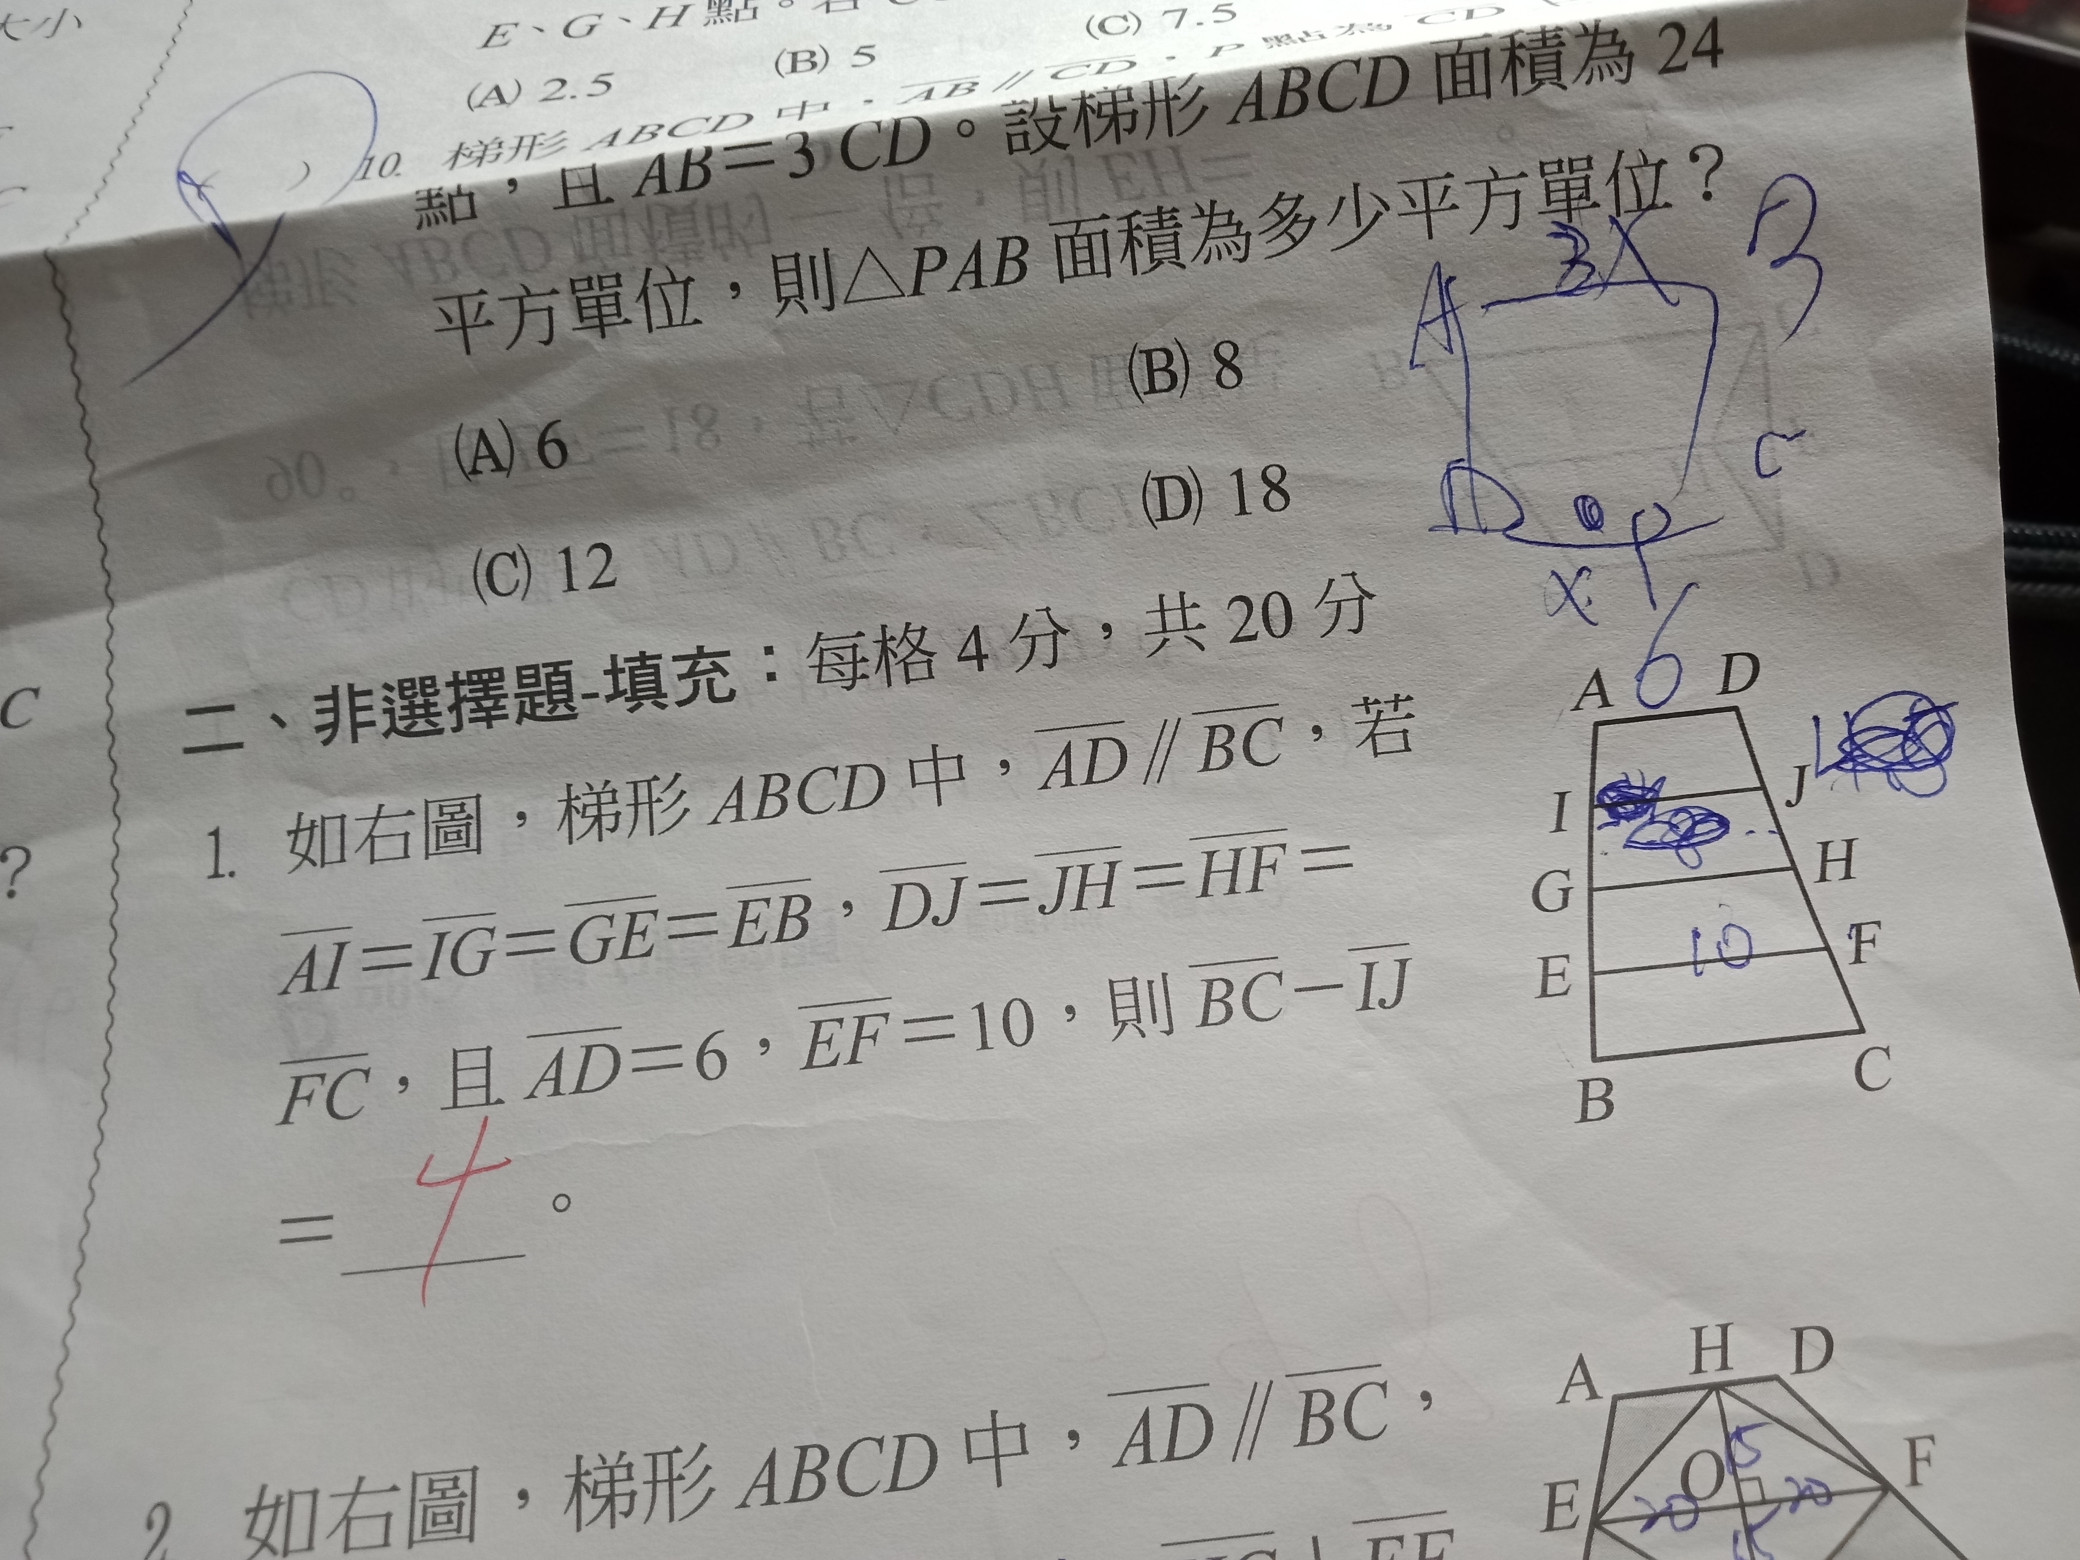 大小
E、G、H 點。若
(A) 2.5
(B) 5
(C) 7.5
) 10. 梯形 ABCD 中，AB∥CD，P 點為 CD
點，且 AB=3 CD。設梯形 ABCD 面積為 24
平方單位，則△PAB 面積為多少平方單位？
(A) 6
(B) 8
(C) 12
(D) 18
3
A
C
D
P
x
C
?
二、非選擇題-填充：每格 4 分，共 20 分
1. 如右圖，梯形 ABCD 中，AD∥BC，若
AI=IG=GE=EB，DJ=JH=HF=
FC，且 AD=6，EF=10，則 BC−IJ
=4。
A 6 D
I J
G H
10
E F
B C
2. 如右圖，梯形 ABCD 中，AD∥BC，
A H D
15
E O F
20 20
15
EF